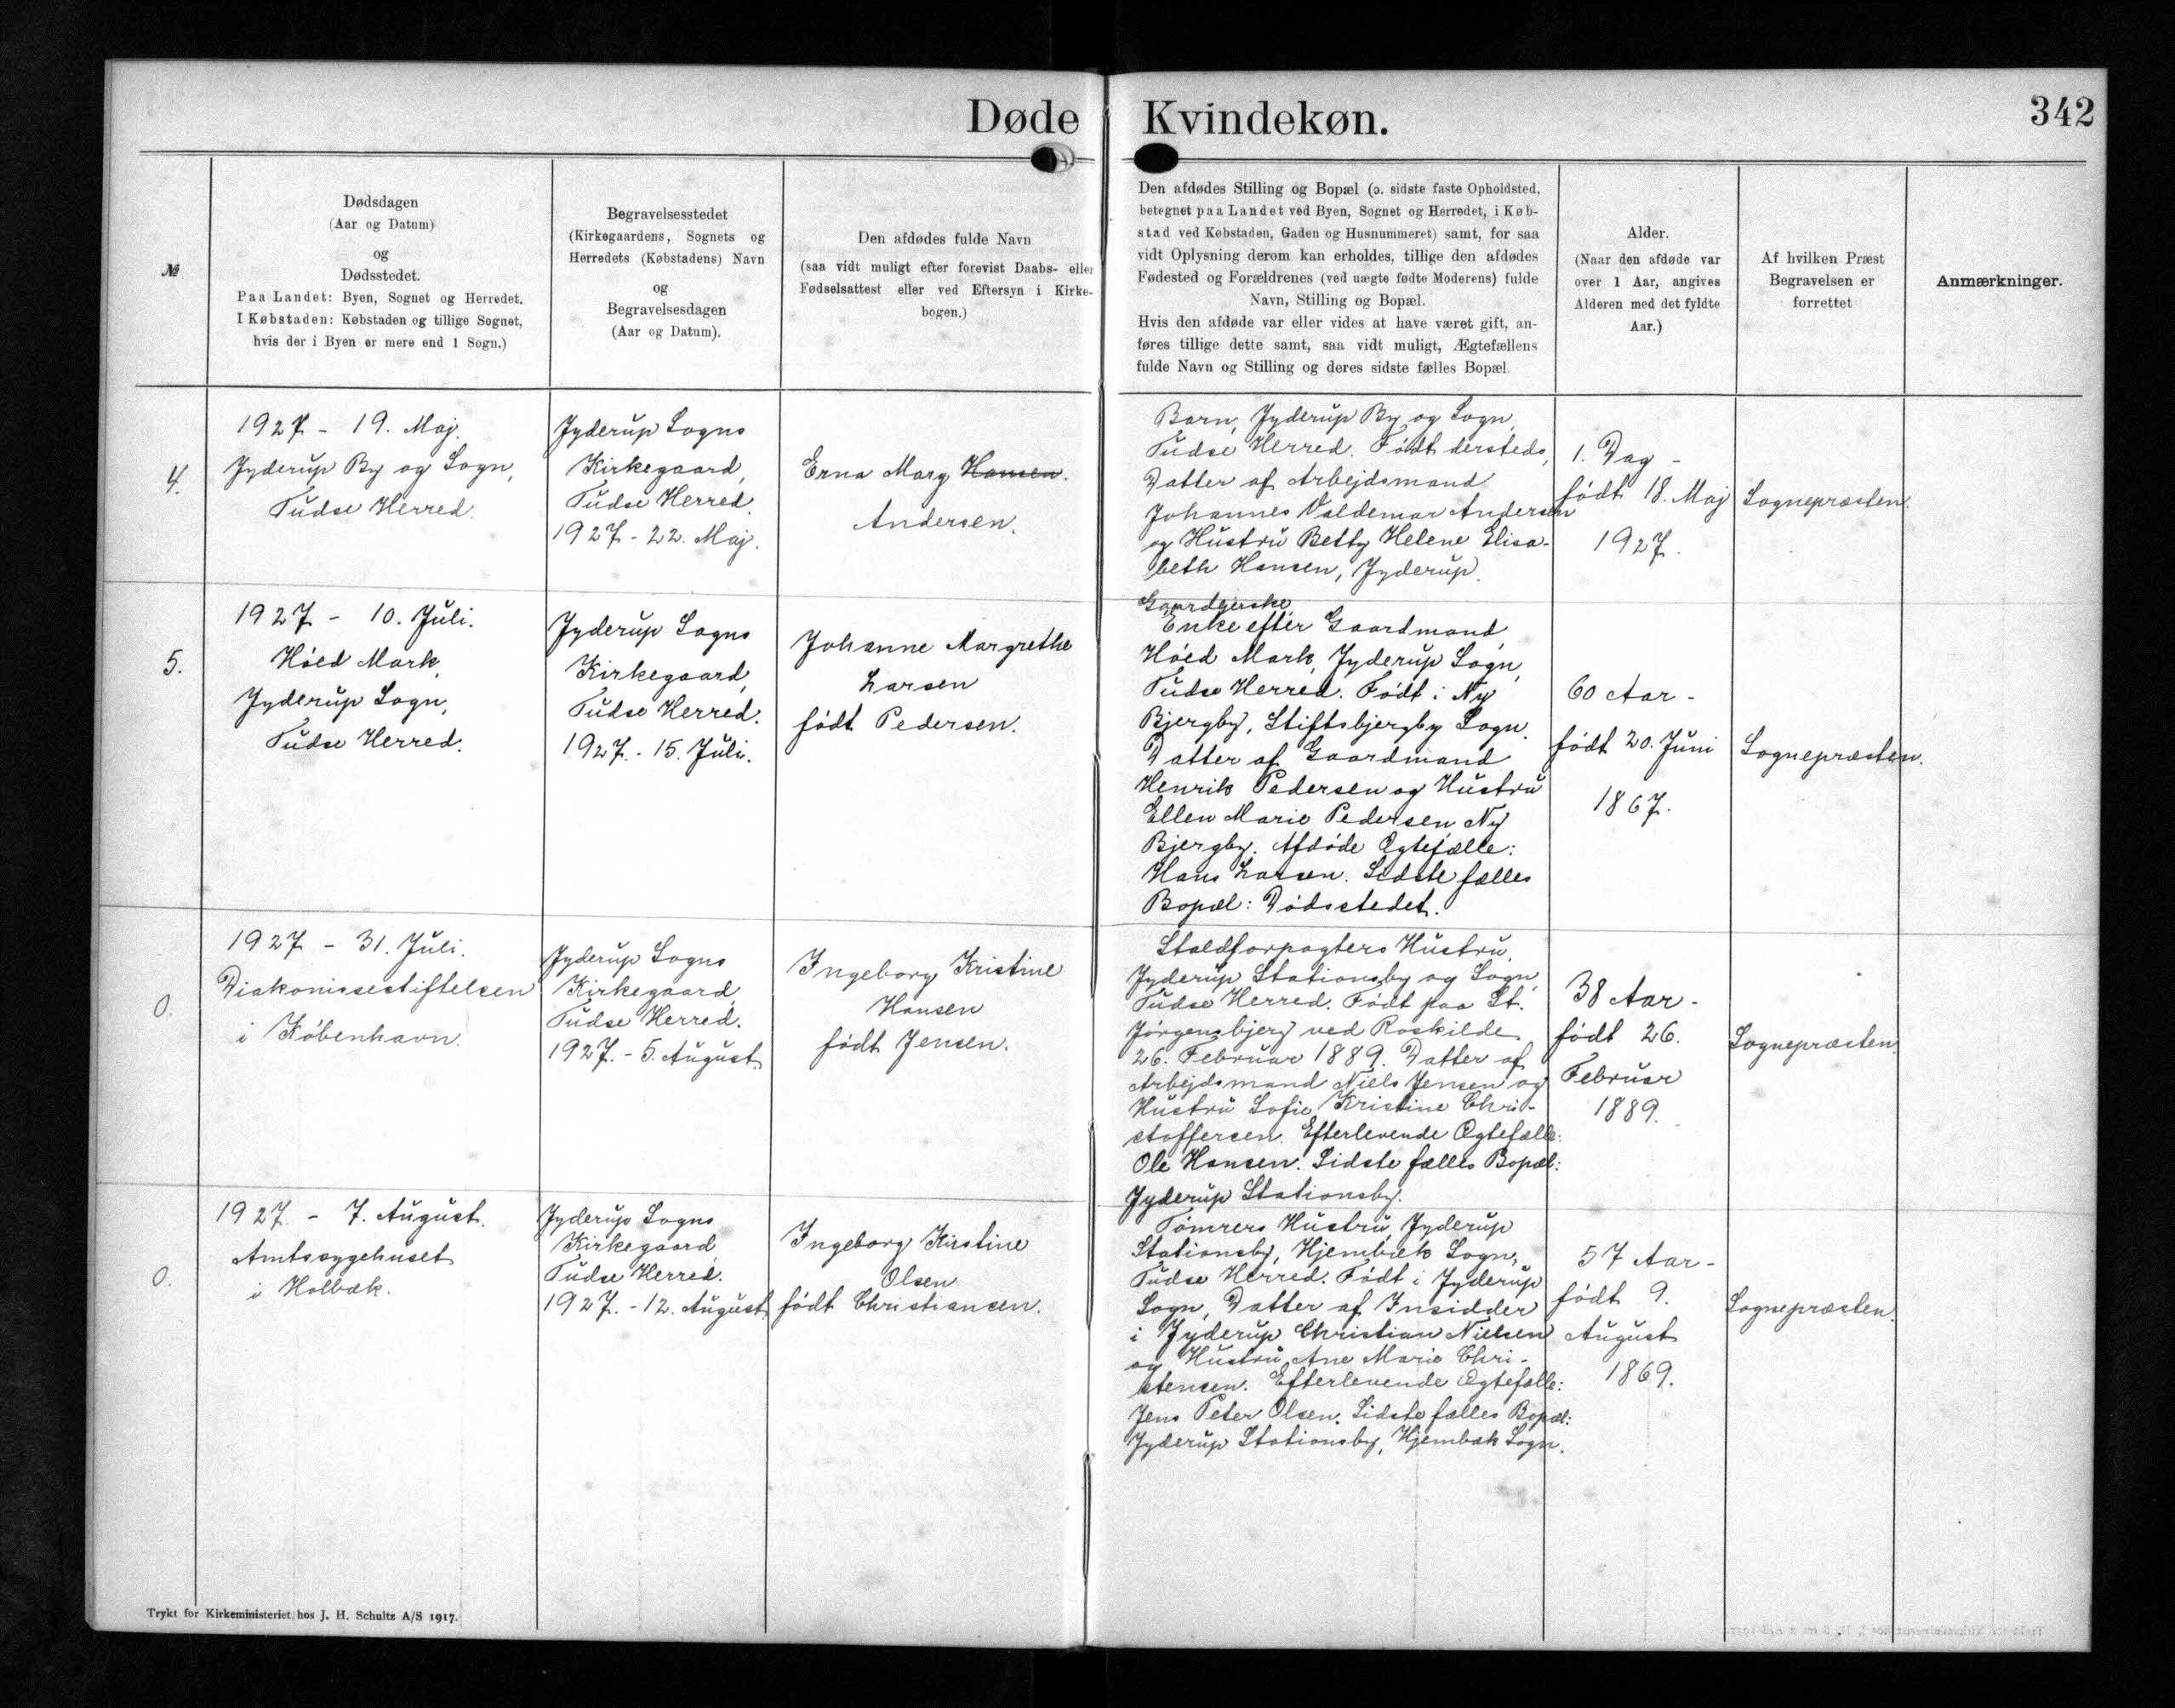 Døde Kvindekøn.
342
№
Dødsdagen
(Aar og Datum)
og
Dødsstedet.
Paa Landet: Byen, Sognet og Herredet.
I Købstaden: Købstaden og tillige Sognet,
hvis der i Byen er mere end 1 Sogn.)
Begravelsesstedet
(Kirkegaardens, Sognets og
Herredets (Købstadens) Navn
og
Begravelsesdagen
(Aar og Datum).
Den afdødes fulde Navn
(saa vidt muligt efter forevist Daabs- eller
Fødselsattest eller ved Eftersyn i Kirke-
bogen.)
Den afdødes Stilling og Bopæl (o. sidste faste Opholdsted,
betegnet paa Landet ved Byen, Sognet og Herredet, i Køb-
stad ved Købstaden, Gaden og Husnummeret) samt, for saa
vidt Oplysning derom kan erholdes, tillige den afdødes
Fødested og Forældrenes (ved uægte fødte Moderens) fulde
Navn, Stilling og Bopæl.
Hvis den afdøde var eller vides at have været gift, an-
føres tillige dette samt, saa vidt muligt, Ægtefællens
fulde Navn og Stilling og deres sidste fælles Bopæl.
Alder.
(Naar den afdøde var
over 1 Aar, angives
Alderen med det fyldte
Aar.)
Af hvilken Præst
Begravelsen er
forrettet
Anmærkninger.
4.
1927 - 19. Maj.
Jyderup By og Sogn,
Tudse Herred.
Jyderup Sogns
Kirkegaard,
Tudse Herred.
1927 - 22. Maj.
Erna Mary Hansen.
Andersen.
Barn, Jyderup By og Sogn,
Tudse Herred. Født dersteds,
Datter af Arbejdsmand
Johannes Valdemar Andersen
og Hustru Betty Helene Elisa-
beth Hansen, Jyderup.
1. Dag -
født 18. Maj
1927.
Sognepræsten.
5.
1927 - 10. Juli.
Høed Mark,
Jyderup Sogn,
Tudse Herred.
Jyderup Sogns
Kirkegaard,
Tudse Herred.
1927. - 15. Juli.
Johanne Margrethe
Larsen
født Pedersen.
Gaardejerske,
Enke efter Gaardmand,
Høed Mark, Jyderup Sogn,
Tudse Herred. Født i Ny
Bjergby, Stiftsbjergby Sogn.
Datter af Gaardmand
Henrik Pedersen og Hustru
Ellen Marie Pedersen Ny
Bjergby. Afdøde Ægtefælle:
Hans Larsen. Sidste fælles
Bopæl: Dødsstedet.
60 Aar -
født 20. Juni
1867.
Sognepræsten.
0.
1927 - 31. Juli.
Diakonissestiftelsen
i København.
Jyderup Sogns
Kirkegaard,
Tudse Herred.
1927. - 5. August.
Ingeborg Kristine
Hansen
født Jensen.
Staldforpagters Hustru,
Jyderup Stationsby og Sogn,
Tudse Herred. Født paa St.
Jørgensbjerg ved Roskilde
26. Februar 1889. Datter af
Arbejdsmand Niels Jensen og
Hustru Sofie Kristine Chri-
stoffersen. Efterlevende Ægtefælle:
Ole Hansen. Sidste fælles Bopæl:
Jyderup Stationsby.
38 Aar -
født 26.
Februar
1889.
Sognepræsten.
0.
1927 - 7. August.
Amtssygehuset
i Holbæk.
Jyderup Sogns
Kirkegaard,
Tudse Herred.
1927. - 12. August.
Ingeborg Kirstine
Olsen
født Christiansen.
Tømrers Hustru, Jyderup
Stationsby, Hjembæk Sogn,
Tudse Herred. Født i Jyderup
Sogn, Datter af Insidder
i Jyderup Christian Nielsen
og Hustru Ane Marie Chri-
stensen. Efterlevende Ægtefælle:
Jens Peter Olsen. Sidste fælles Bopæl:
Jyderup Stationsby, Hjembæk Sogn.
57 Aar -
født 9.
August
1869.
Sognepræsten.
Trykt for Kirkeministeriet hos J. H. Schultz A/S 1917.